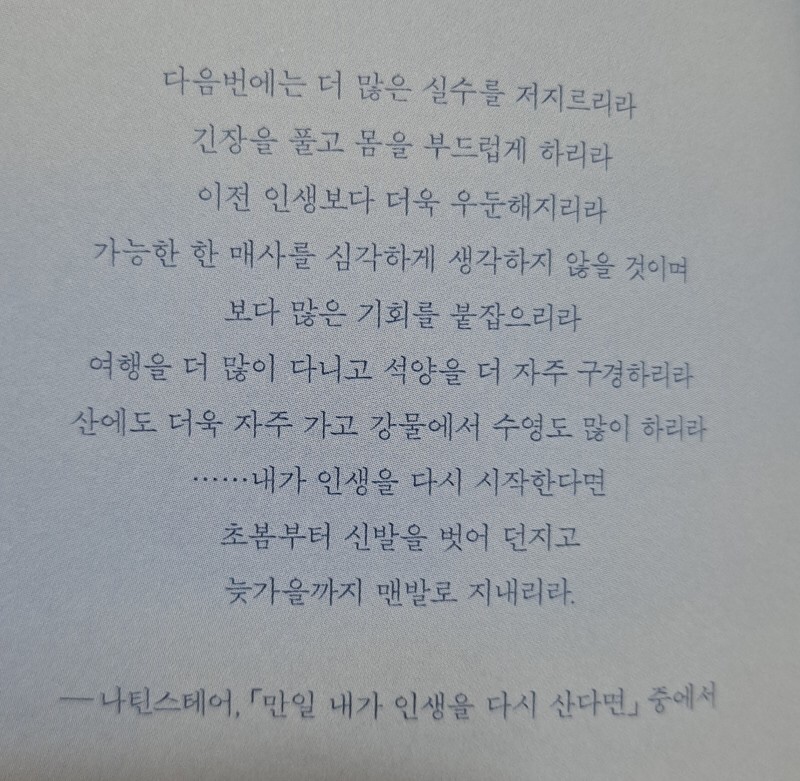 다음번에는 더 많은 실수를 저지르리라
긴장을 풀고 몸을 부드럽게 하리라
이전 인생보다 더욱 우둔해지리라
가능한 한 매사를 심각하게 생각하지 않을 것이며
보다 많은 기회를 붙잡으리라
여행을 더 많이 다니고 석양을 더 자주 구경하리라
산에도 더욱 자주 가고 강물에서 수영도 많이 하리라
……내가 인생을 다시 시작한다면
초봄부터 신발을 벗어 던지고
늦가을까지 맨발로 지내리라.
—나틴스테어,「만일 내가 인생을 다시 산다면」중에서